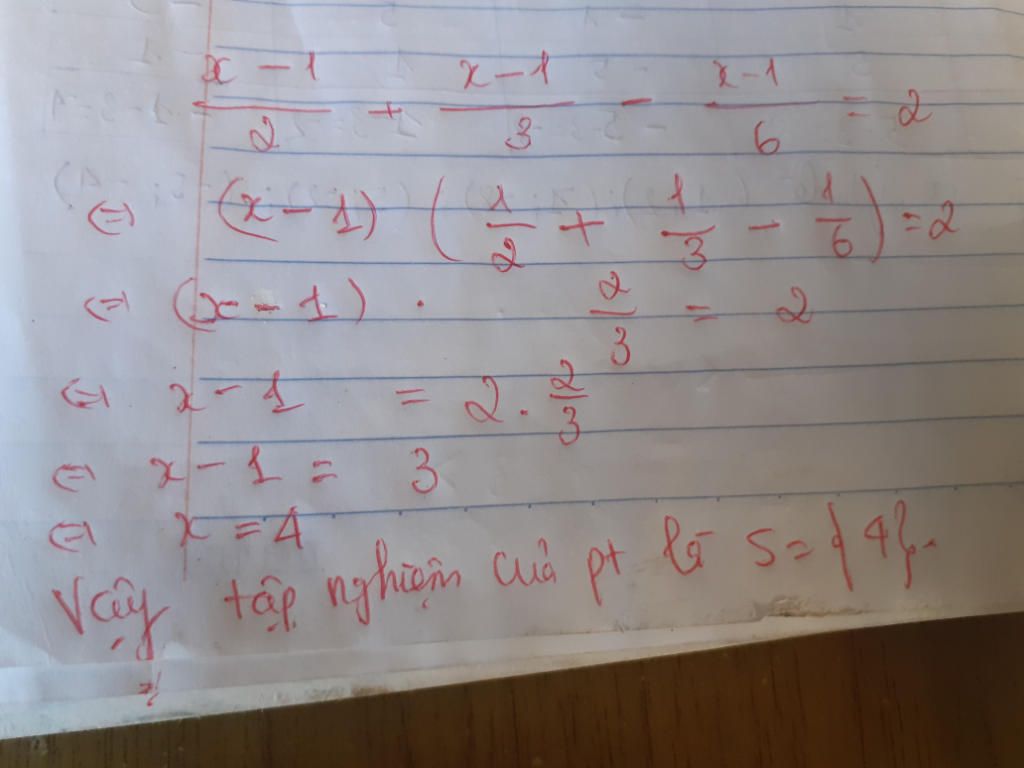 x - 1 / 2 + x - 1 / 3 - x - 1 / 6 = 2
⇔ (x - 1) (1/2 + 1/3 - 1/6) = 2
⇔ (x - 1) . 2/3 = 2
⇔ x - 1 = 2 . 2/3
⇔ x - 1 = 3
⇔ x = 4
Vậy tập nghiệm của pt là S = {4}.